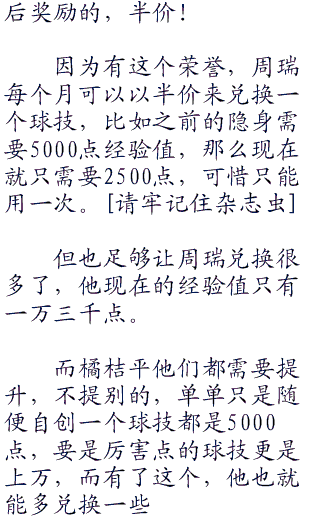 后奖励的，半价！
因为有这个荣誉，周瑞
每个月可以以半价来兑换一
个球技，比如之前的隐身需
要5000点经验值，那么现在
就只需要2500点，可惜只能
用一次。[请牢记住杂志虫]
但也足够让周瑞兑换很
多了，他现在的经验值只有
一万三千点。
而橘桔平他们都需要提
升，不提别的，单单只是随
便自创一个球技都是5000
点，要是厉害点的球技更是
上万，而有了这个，他也就
能多兑换一些